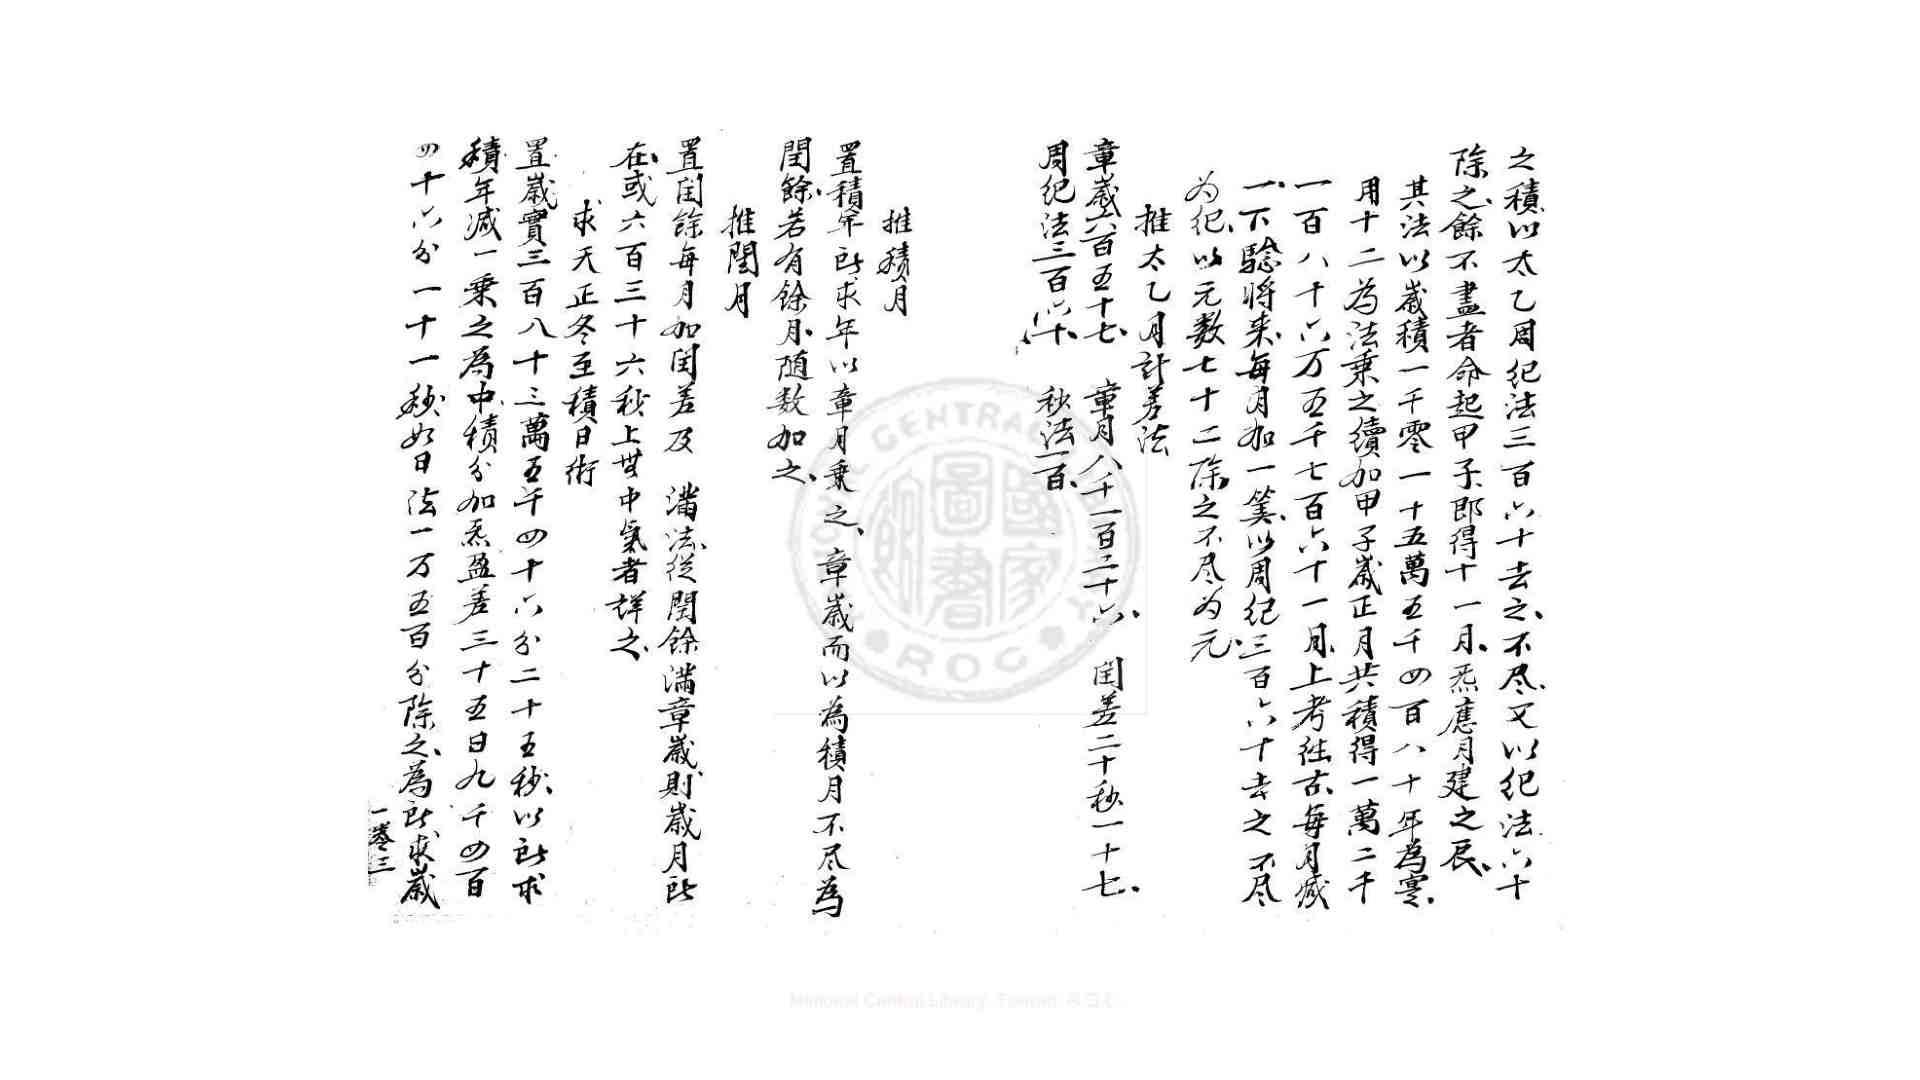 之積以太乙周纪法三百六十去之不尽又以纪法六十
除之餘不盡者命起甲子郎得十一月炁應月建之辰
其法以嵗積一千零一十五萬五千四百八十年為寔
用十二為法乗之續加甲子嵗正月共積得一萬二千
一百八十六万五千七百六十一月上考徃古每月减
一下驗将来每月加一筭以周纪三百六十去之不尽
为纪以元数七十二除之不尽为元
推太乙月計差法
章嵗六百五十七 章月八千一百二十六 閏差二十秒一十七
周纪法三百六十 秒法一百
推積月
置積年所求年以章月乗之章嵗而以為積月不尽為
閏餘若有餘月随数加之
推閏月
置閏餘每月加閏差及 滿法從閏餘滿章嵗則嵗月所
在或六百三十六秒上無中氣者詳之
求天正冬至積日術
置嵗實三百八十三萬五千四十六分二十五秒以所求
積年减一乗之為中積分加炁盈差三十五日九千四百
四十六分一十一秒如日法一万五百分除之為所求嵗
一卷三
National Central Library, Taiwan
NATIONAL CENTRAL LIBRARY
ROC
國家圖書館